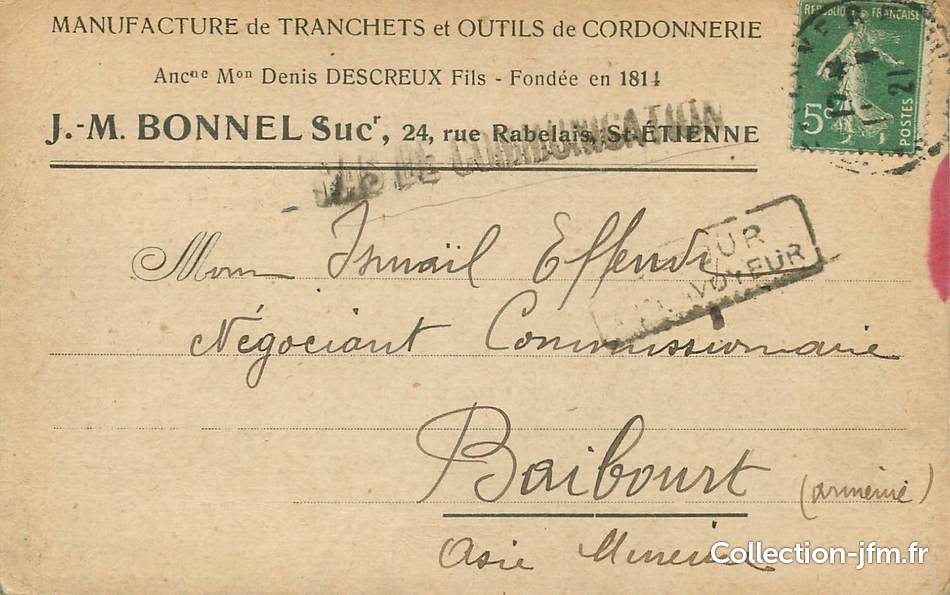 MANUFACTURE de TRANCHETS et OUTILS de CORDONNERIE
Ancne Mon Denis DESCREUX Fils - Fondée en 1814
J.-M. BONNEL Sucr, 24, rue Rabelais, St-ÉTIENNE
REPUBLIQUE FRANÇAISE
5c
POSTES
21
PAS DE COMMUNICATION
Ismaïl Effendi
ENVOYEUR
Négociant Commissionnaire
Baibourt (arménie)
Asie Mineure
Collection-jfm.fr